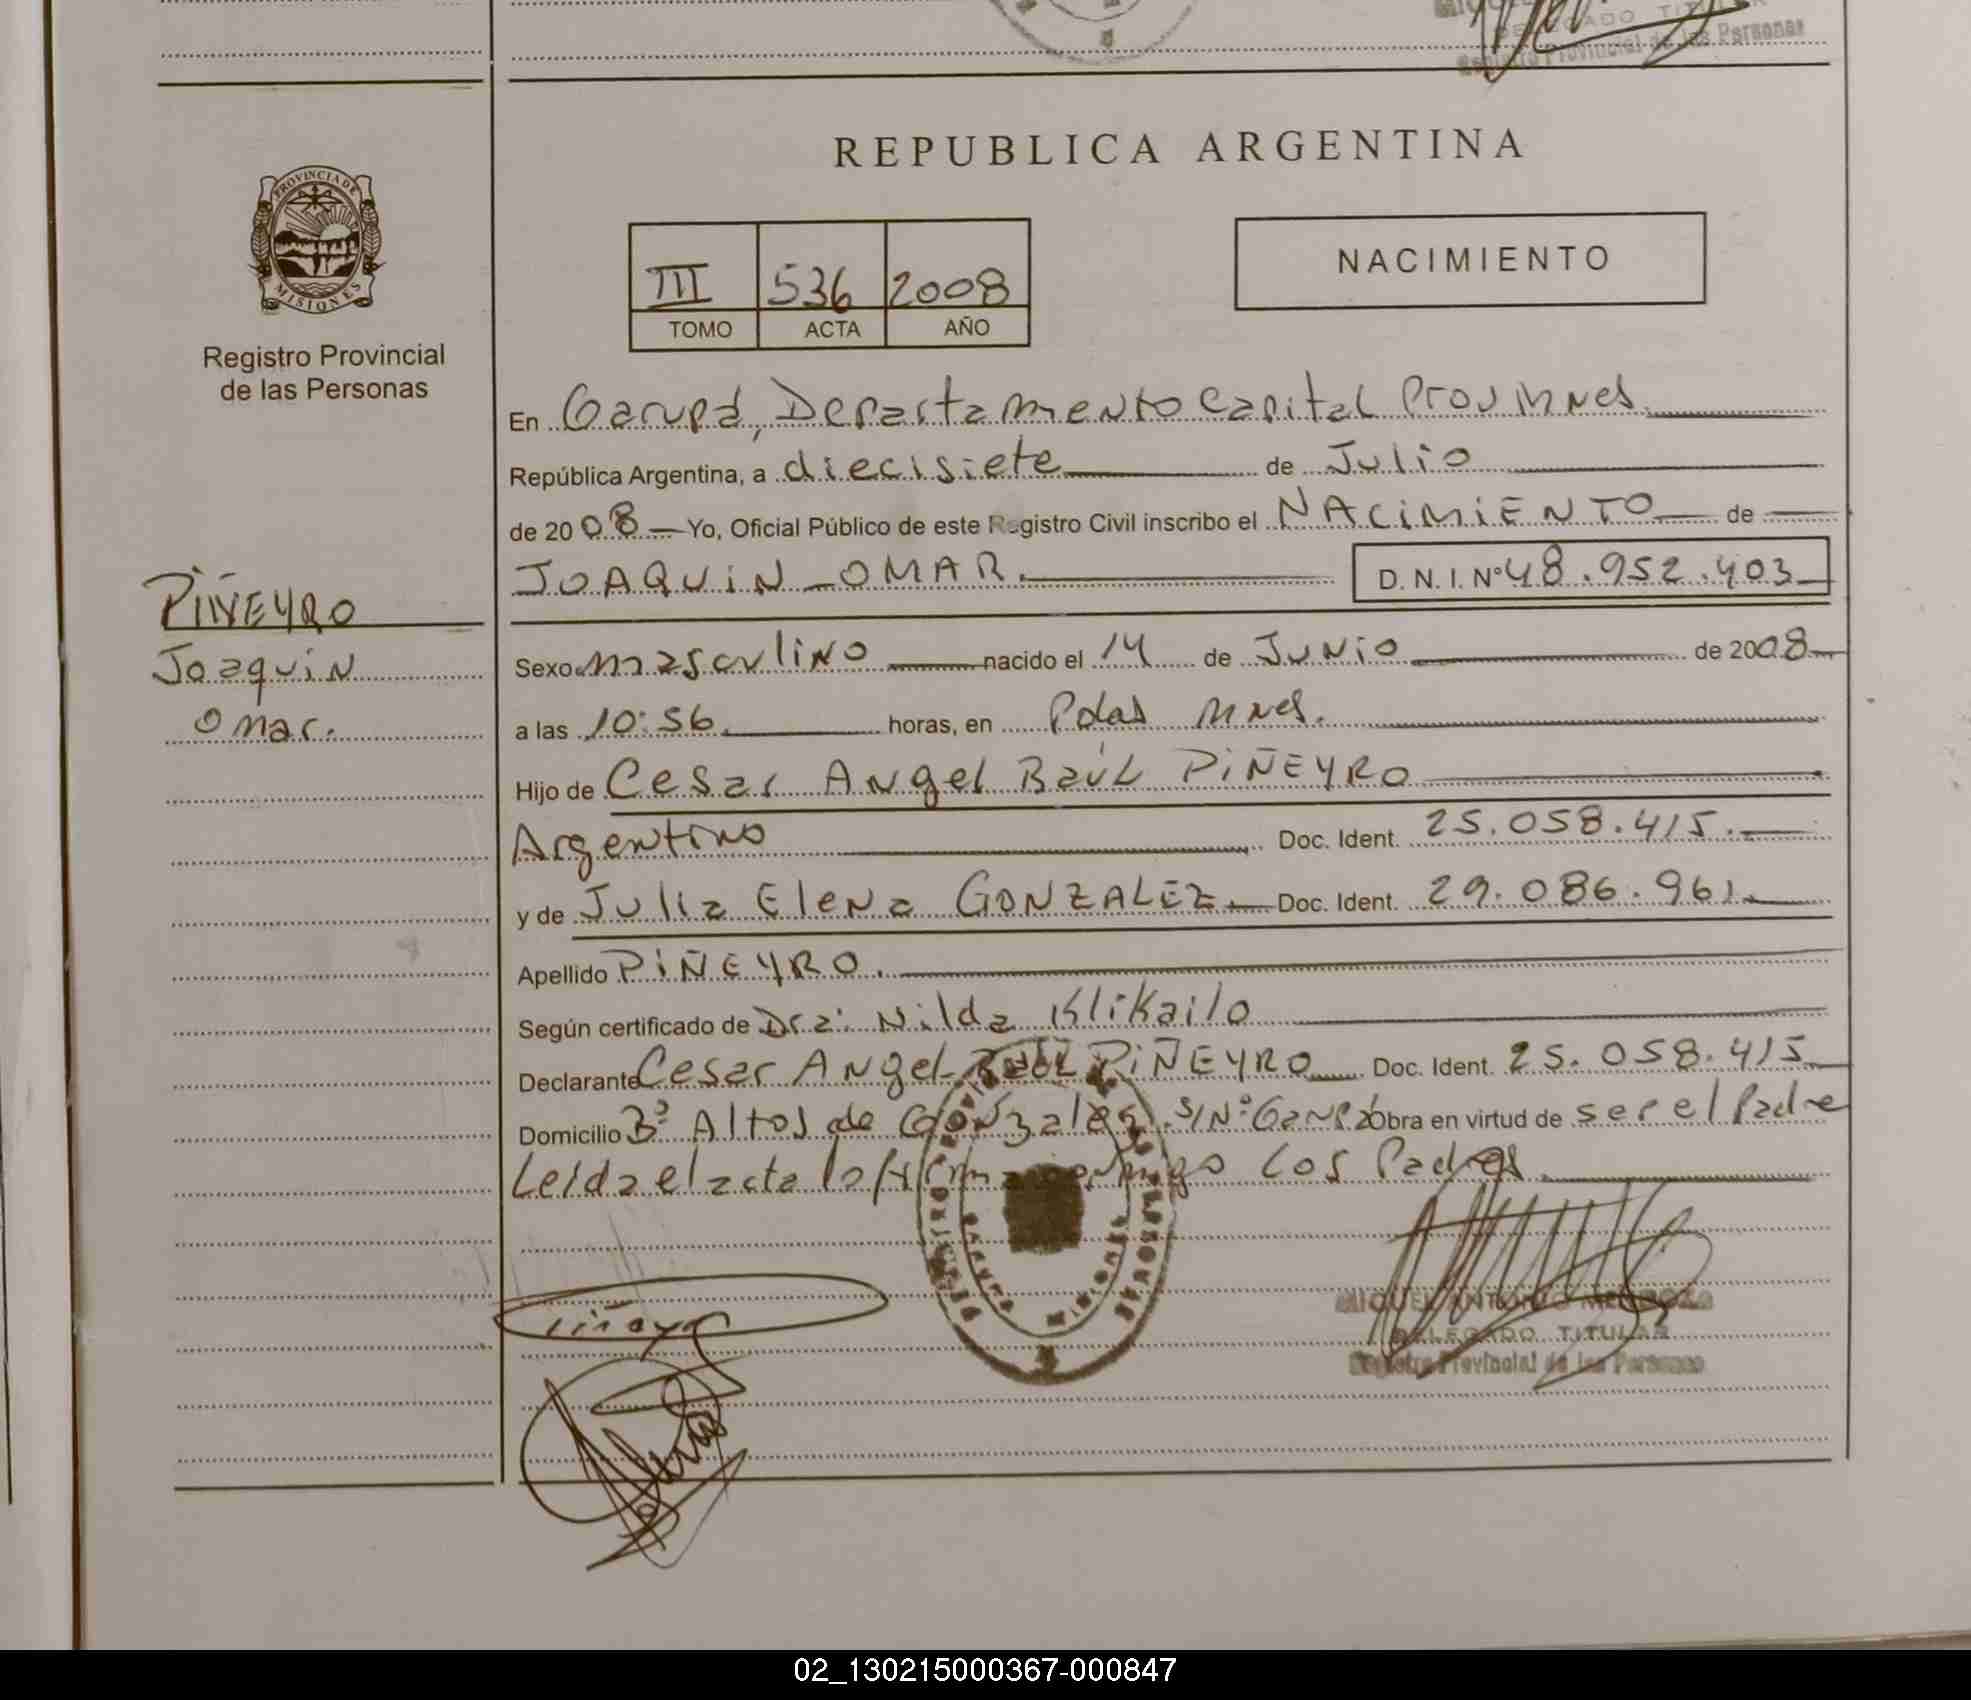 DELEGADO TITULAR
Registro Provincial de las Personas
PROVINCIA DE
MISIONES
Registro Provincial
de las Personas
PIÑEYRO
Joaquin
Omar.
REPUBLICA ARGENTINA
III 536 2008
TOMO ACTA AÑO
NACIMIENTO
En Garupá, Departamento Capital Prov Mnes.
República Argentina, a diecisiete de Julio
de 2008 Yo, Oficial Público de este Registro Civil inscribo el NACIMIENTO de
JOAQUIN OMAR. D.N.I. Nº 48.952.403
Sexo masculino nacido el 14 de Junio de 2008
a las 10:56 horas, en Pdas Mnes.
Hijo de Cesar Angel Raúl PIÑEYRO
Argentino Doc. Ident. 25.058.415.
y de Julia Elena GONZALEZ Doc. Ident. 29.086.961.
Apellido PIÑEYRO.
Según certificado de Dra: Nilda Klikailo
Declarante Cesar Angel Raúl PIÑEYRO Doc. Ident. 25.058.415
Domicilio Bº Altos de Gonzales S/Nº Garupá Obra en virtud de ser el Padre
Leida el acta la firma conmigo Los Padres
MIGUEL ANTONIO MENDOZA
DELEGADO TITULAR
Registro Provincial de las Personas
02_130215000367-000847